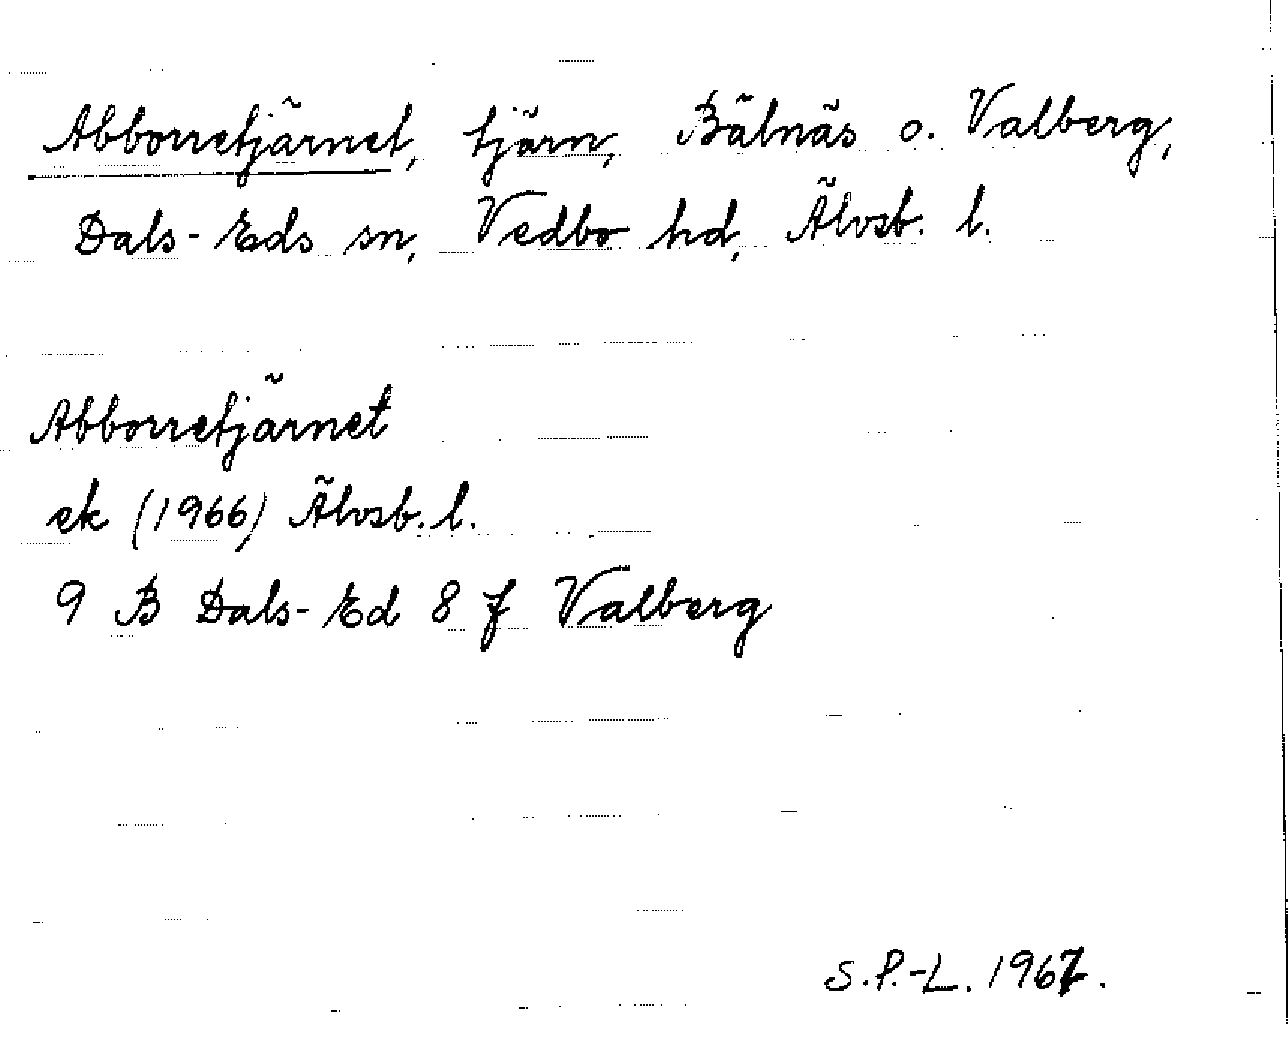 Abborretjärnet, tjärn, Bälnäs o. Valberg,
Dals-Eds sn, Vedbo hd, Älvsb. l.
Abborretjärnet
ek (1966) Älvsb. l.
9 B Dals-Ed 8 f Valberg
S.P.-L. 1967.